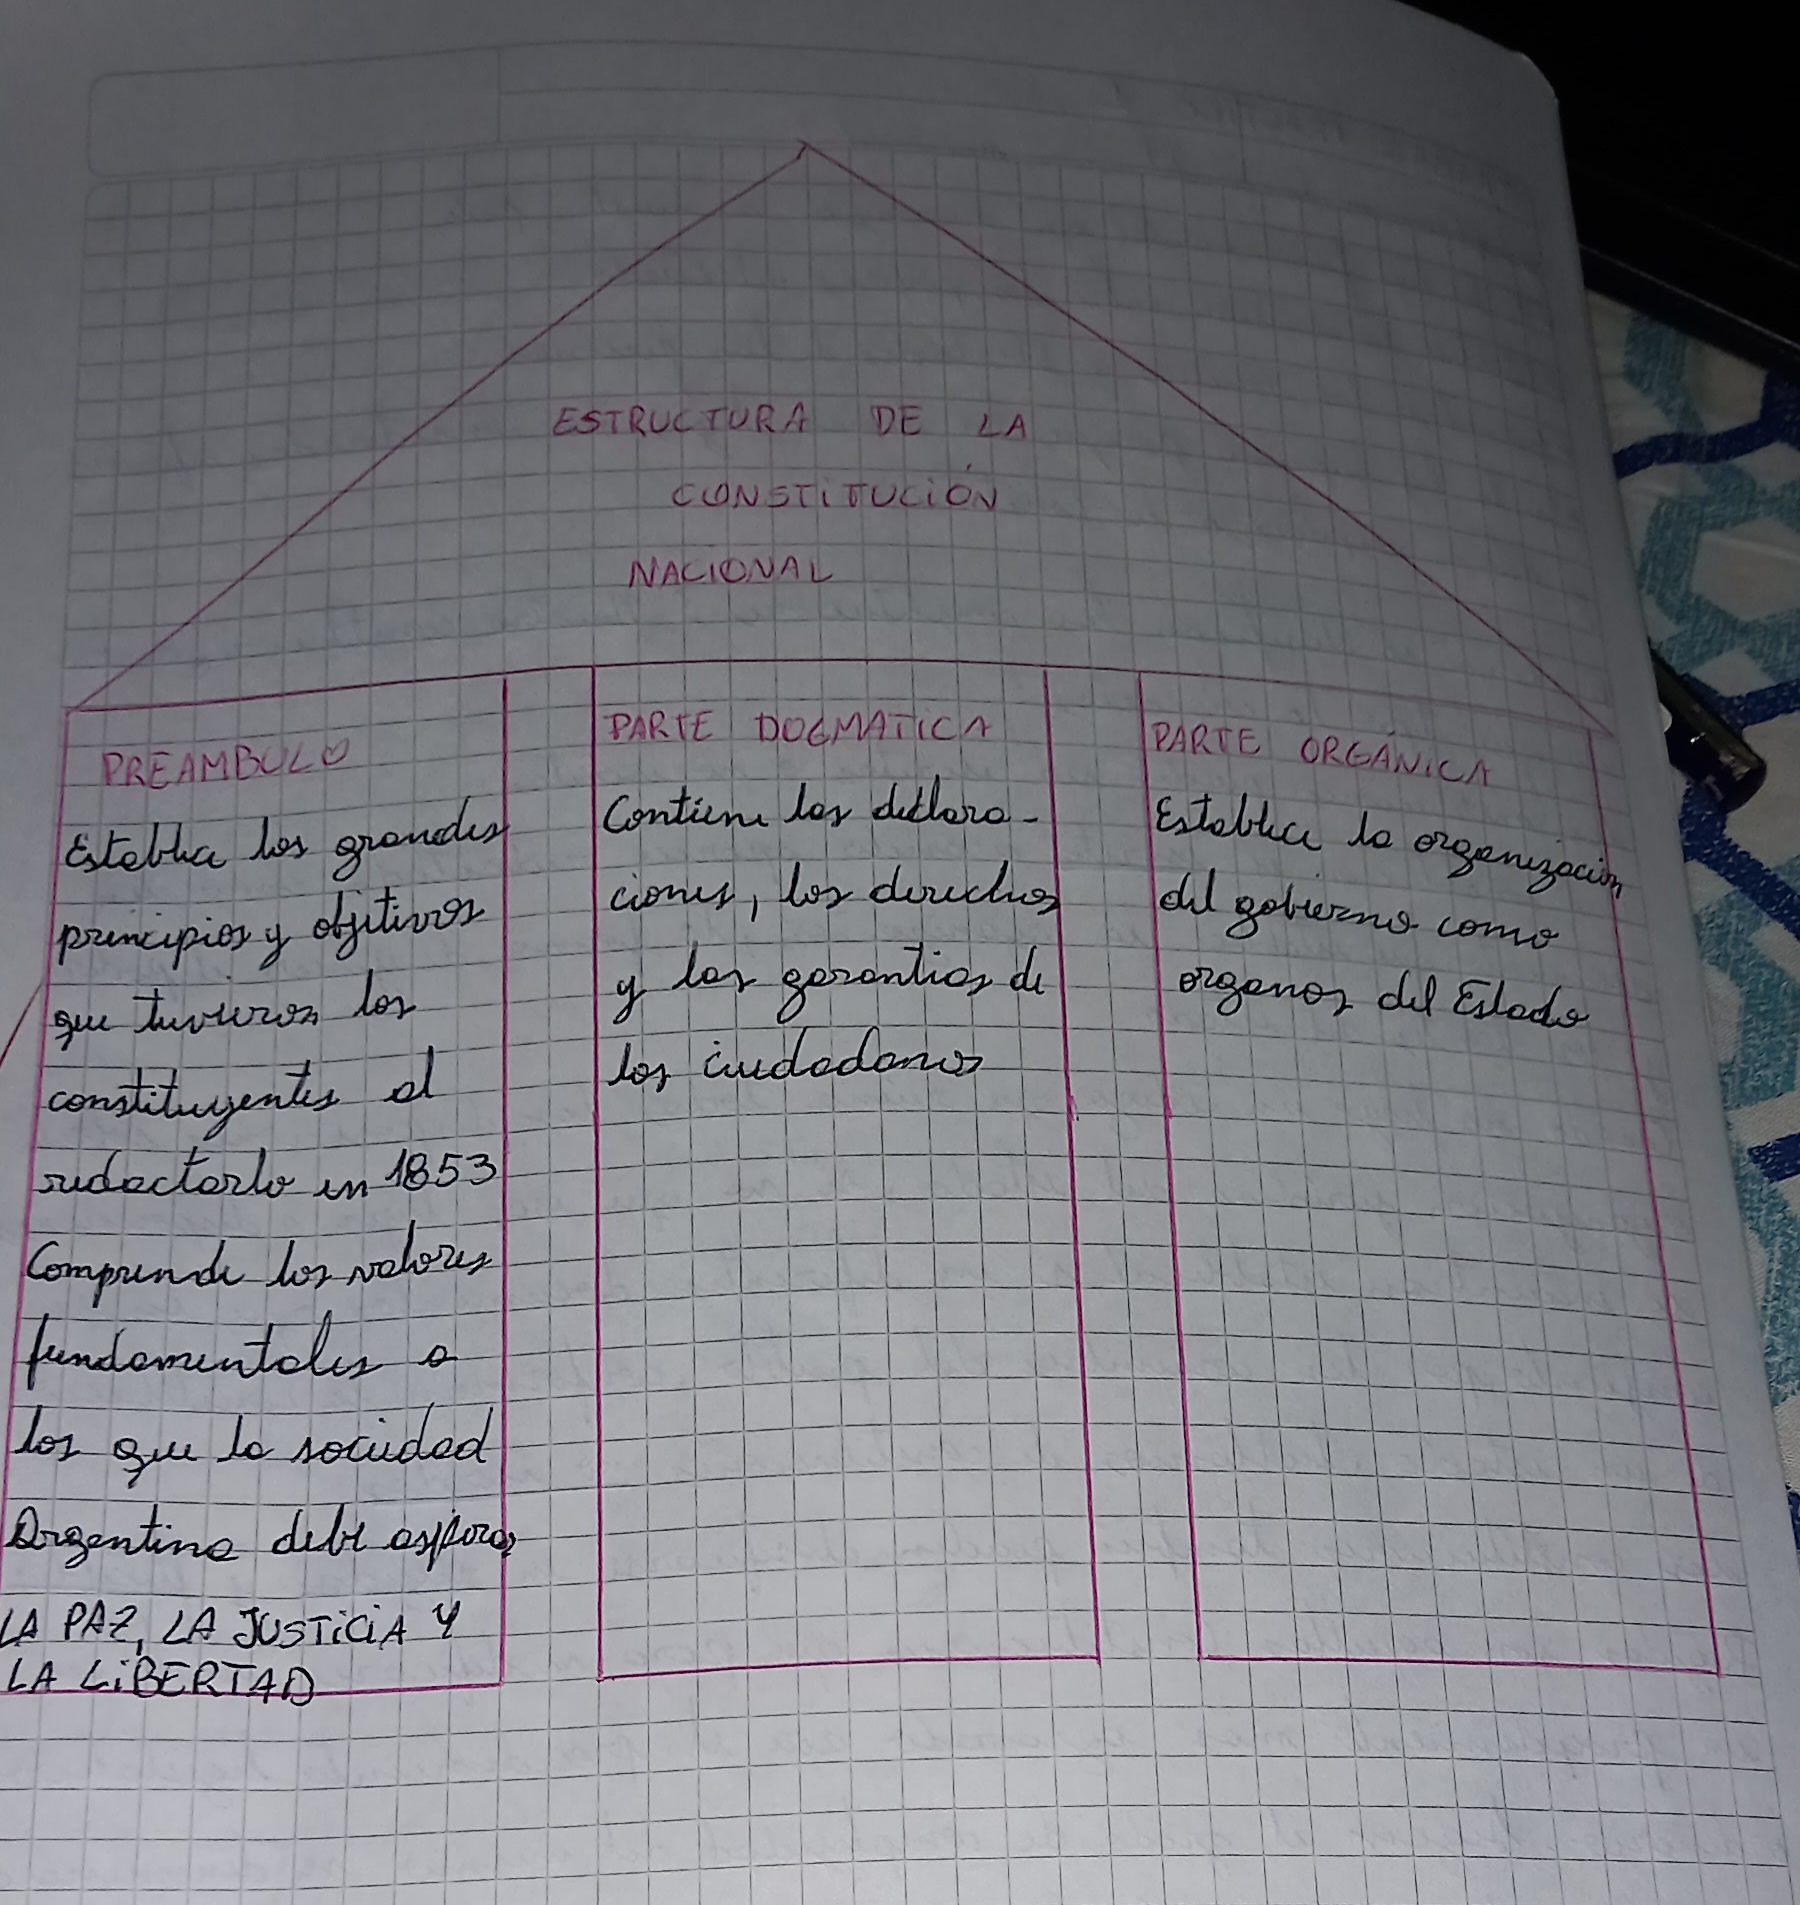 ESTRUCTURA DE LA
CONSTITUCIÓN
NACIONAL
PREAMBULO
Establece los grandes
principios y objetivos
que tuvieron los
constituyentes al
redactarlo en 1853
Comprende los valores
fundamentales a
los que la sociedad
Argentina debe aspirar
LA PAZ, LA JUSTICIA Y
LA LIBERTAD
PARTE DOGMATICA
Contiene las declara-
ciones, los derechos
y las garantias de
los ciudadanos
PARTE ORGÁNICA
Establece la organización
del gobierno como
organos del Estado